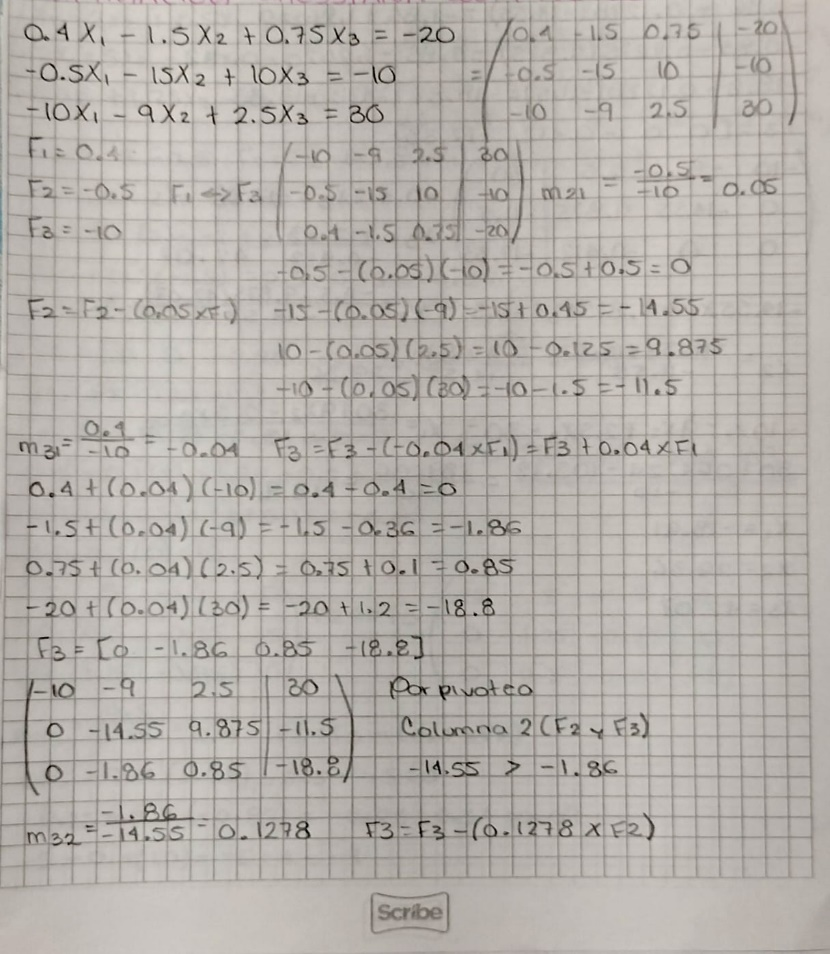 0.4X₁ - 1.5X₂ + 0.75X₃ = -20
-0.5X₁ - 15X₂ + 10X₃ = -10
-10X₁ - 9X₂ + 2.5X₃ = 30
= (0.4 -1.5 0.75 | -20
-0.5 -15 10 | -10
-10 -9 2.5 | 30)
F₁ = 0.4
F₂ = -0.5 F₁ <-> F₃
F₃ = -10
(-10 -9 2.5 | 30
-0.5 -15 10 | -10
0.4 -1.5 0.75 | -20)
m₂₁ = -0.5/-10 = 0.05
-0.5 - (0.05)(-10) = -0.5 + 0.5 = 0
F₂ = F₂ - (0.05xF₁) -15 - (0.05)(-9) = -15 + 0.45 = -14.55
10 - (0.05)(2.5) = 10 - 0.125 = 9.875
-10 - (0.05)(30) = -10 - 1.5 = -11.5
m₃₁ = 0.4/-10 = -0.04 F₃ = F₃ - (-0.04xF₁) = F₃ + 0.04xF₁
0.4 + (0.04)(-10) = 0.4 - 0.4 = 0
-1.5 + (0.04)(-9) = -1.5 - 0.36 = -1.86
0.75 + (0.04)(2.5) = 0.75 + 0.1 = 0.85
-20 + (0.04)(30) = -20 + 1.2 = -18.8
F₃ = [0 -1.86 0.85 -18.8]
(-10 -9 2.5 | 30
0 -14.55 9.875 | -11.5
0 -1.86 0.85 | -18.8)
Por pivoteo
Columna 2 (F2 y F3)
-14.55 > -1.86
m₃₂ = -1.86/-14.55 = 0.1278 F3 = F3 - (0.1278 x F2)
Scribe